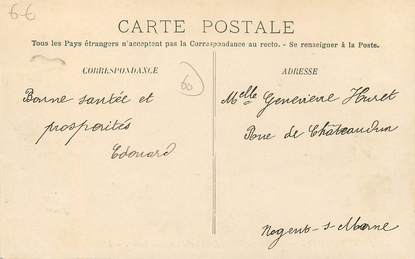 66
CARTE POSTALE
Tous les Pays étrangers n'acceptent pas la Correspondance au recto. - Se renseigner à la Poste.
CORRESPONDANCE
60
Bonne santée et
prosperités
Edouard
ADRESSE
Melle Genevieve Huret
Rue de Châteaudun
Nogent-s-Marne